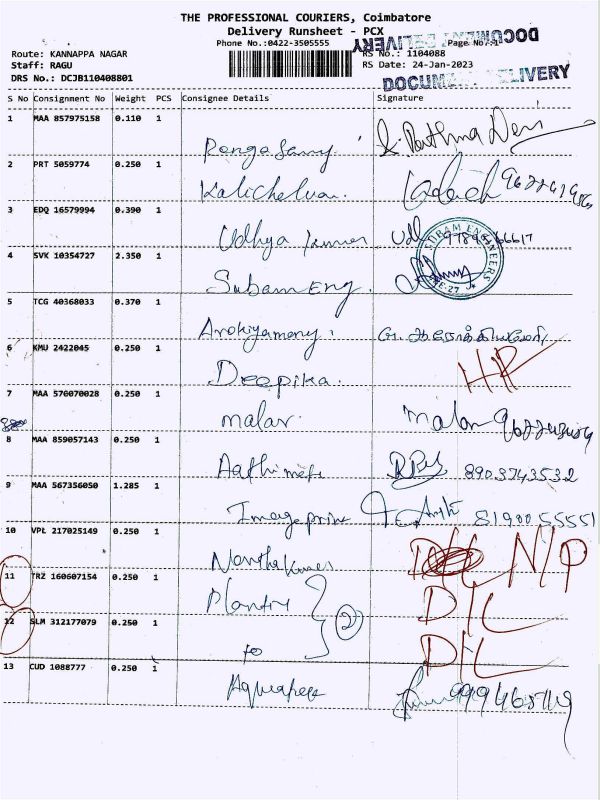 THE PROFESSIONAL COURIERS, Coimbatore
Delivery Runsheet - PCX
Phone No.:0422-3505555
Page No.:1
DOCUMENT DELIVERY
Route: KANNAPPA NAGAR
RS No.: 1104088
Staff: RAGU
RS Date: 24-Jan-2023
DRS No.: DCJB110408801
DOCUMENT DELIVERY
S No Consignment No Weight PCS Consignee Details Signature
1 MAA 857975158 0.110 1
Rengasamy
2 PRT 5059774 0.250 1
Kalichelvan.
3 EDQ 16579994 0.390 1
Udhya kumar
4 SVK 10354727 2.350 1
SUBAM ENGINEERS
Subam Eng.
5 TCG 40368033 0.370 1
Arokiyamary.
6 KMU 2422045 0.250 1
Deepika.
7 MAA 570070028 0.250 1
malar. Malar
8 MAA 859057143 0.250 1
8903743532
9 MAA 567356050 1.285 1
Imageprine 8190055551
10 VPL 217025149 0.250 1
Nanthakumar N/P
11 TRZ 160607154 0.250 1
D/L
12 SLM 312177079 0.250 1
2
D/L
13 CUD 1088777 0.250 1